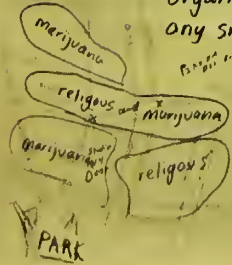 organi
any sm
marijuana
religous and marijuana
x
x
marijuana
religous
PARK